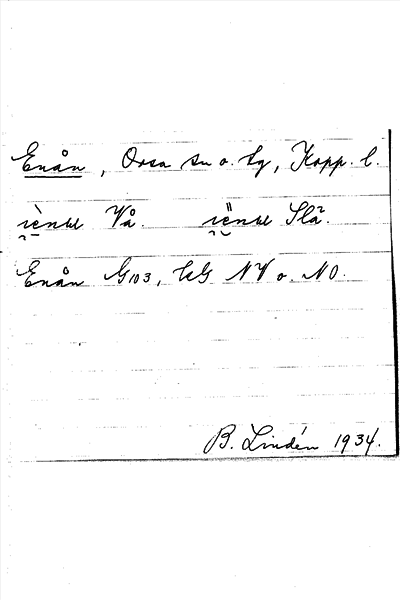 Enån, Orsa sn o. tg, Kopp. l.
Vå. Slä.
Enån G103, GG NV o. NO.
B. Lindén 1934.